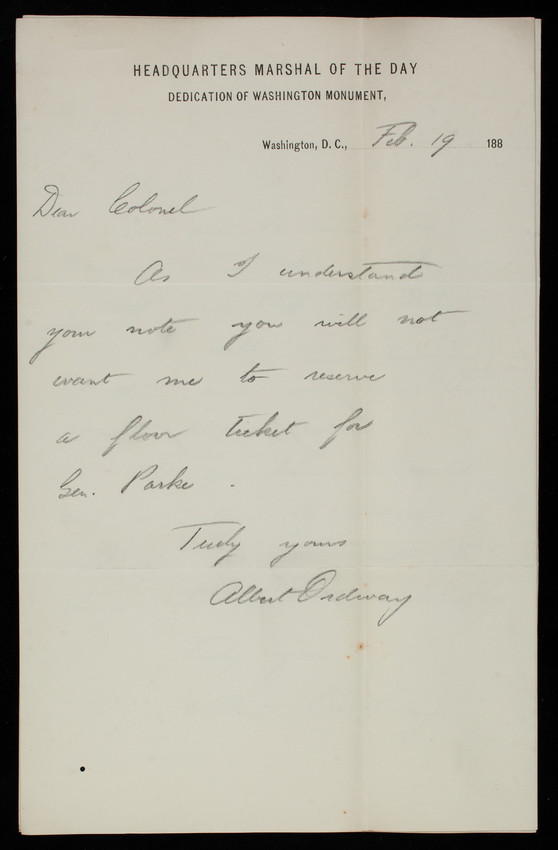 HEADQUARTERS MARSHAL OF THE DAY
DEDICATION OF WASHINGTON MONUMENT,
Washington, D. C., Feb. 19 188
Dear Colonel
As I understand
your note you will not
want me to reserve
a floor ticket for
Gen. Parke.
Truly yours
Albert Ordway